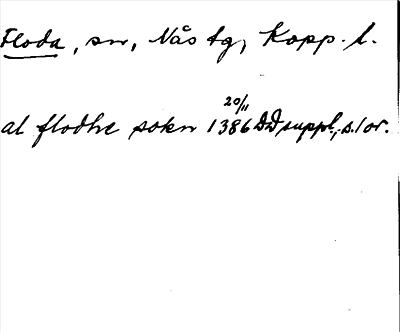 Floda, sn, Nås tg, Kopp. l.
20/11
al flodhe sokn 1386 DD suppl., s. 1 or.